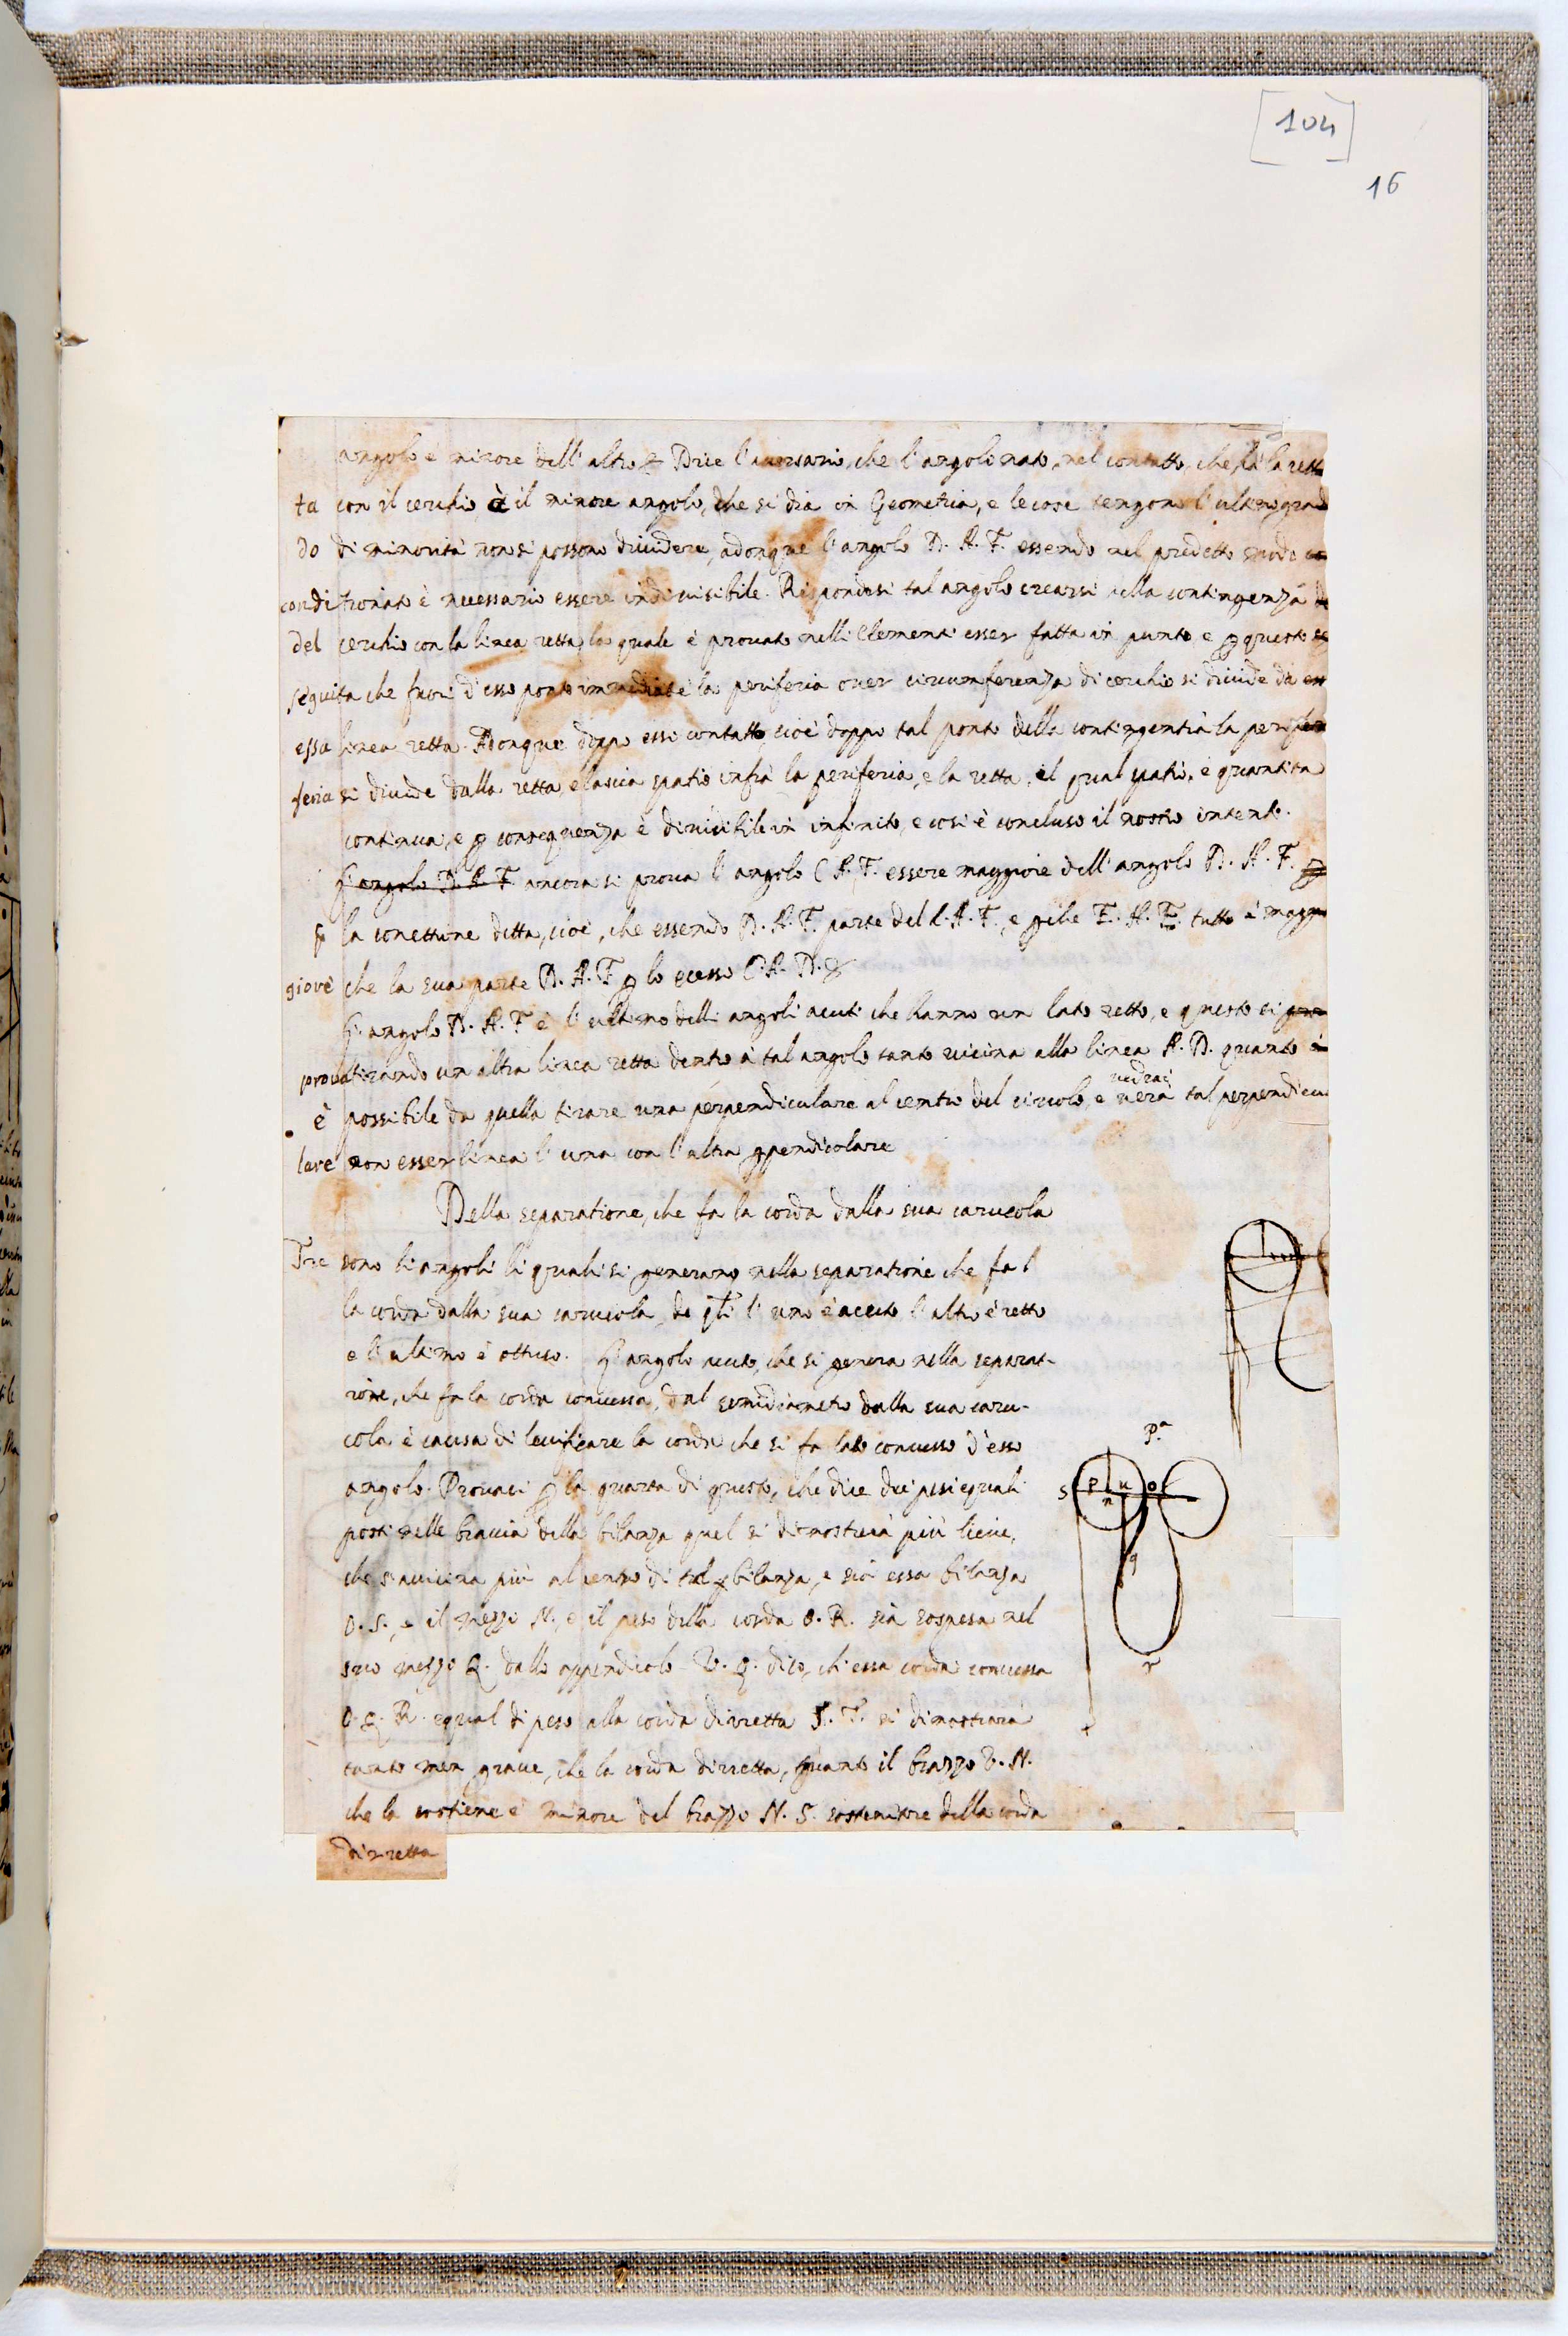 [104]
16
angolo è minore dell' altro & Dice l'aversario, che l'angolo nato, nel contatto, che fà la rett
ta con il cerchio è il minore angolo, che si dia in Geometria, e le cose tengono l'ultimo grad
do di minorità non si possono dividere, adonque l'angolo D. A. F. essendo nel predetto modo con
conditionato è necessario essere indivisibile. Rispondesi tal angolo crearsi nella contingenza de
del cerchio con la linea retta, la quale è provato nelli Elementi esser fatta in punto, e p questo se
séguita che fuori d'esso ponto immediate la periferia over circumferenza di cerchio si divide da ess
essa linea retta. Adonque doppo essi contatto, cioè doppo tal ponto della contingentia la perifer
feria si divide dalla retta, e lascia spatio infrà la periferia, e la retta, il qual spatio, è quantita
continua, e p consequenza è divisibile in infinito, e cosi è concluso il nostro intento.
L'angolo D. A. F. ancora si prova l'angolo C A. F. essere maggiore dell' angolo D. A. F. p
p la conettione detta, cioè, che essendo D. A. F. parte del C. A. F., e pche F. A. F. tutto è maggio
giore che la sua parte D. A. F. p lo ecesso C. A. D. &
L'angolo D. A. F è l'ultimo delli angoli acuti che hanno un lato retto, e questo si pro
prova tirando un altra linea retta dentro à tal angolo tanto vicina alla linea A. D. quanto è
vedrai
è possibile da quella tirare una perpendiculare al centro del circolo, e verà tal perpendicu
lare non esser linea l'una con l'altra ppendicolare
Della separatione, che fa la corda dalla sua carucola
Tre sono li angoli li quali si generano nella separatione che fa l
la corda dalla sua carucola, de qli l'uno è acuto, l'altro è retto
e l'ultimo è ottuso. L'angolo acuto, che si genera nella separat-
ione, che fa la corda concessa, dal semidiametro dalla sua caru-
cola è causa di levificare la corda che si fa lato concesso d'esso
angolo. Provasi p la quarta di questo, che dice dui pesi equali
posti nelle braccia della bilanza quel si dimostrerà più lieve,
che s'avvicina più al centro di tal bilanza, e sia essa bilanza
O. S., e il mezzo N., e il peso della corda O. R. sia sospesa nel
suo mezzo Q. dallo appendicolo V. Q. dico, ch' essa corda concessa
O. Q. R. equal di peso alla corda dirretta S. T. si dimostrerà
tanto men grave, che la corda dirretta, quanto il brazzo V. N.
che la sostiene è minore del brazzo N. S. sostenitore della corda
dirretta
P.a
S P u o
n
q
r
t